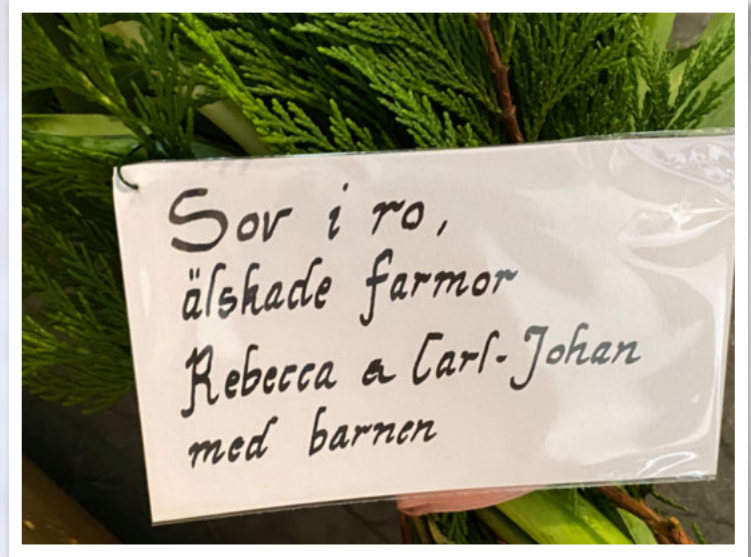 Sov i ro,
älskade farmor
Rebecca & Carl-Johan
med barnen